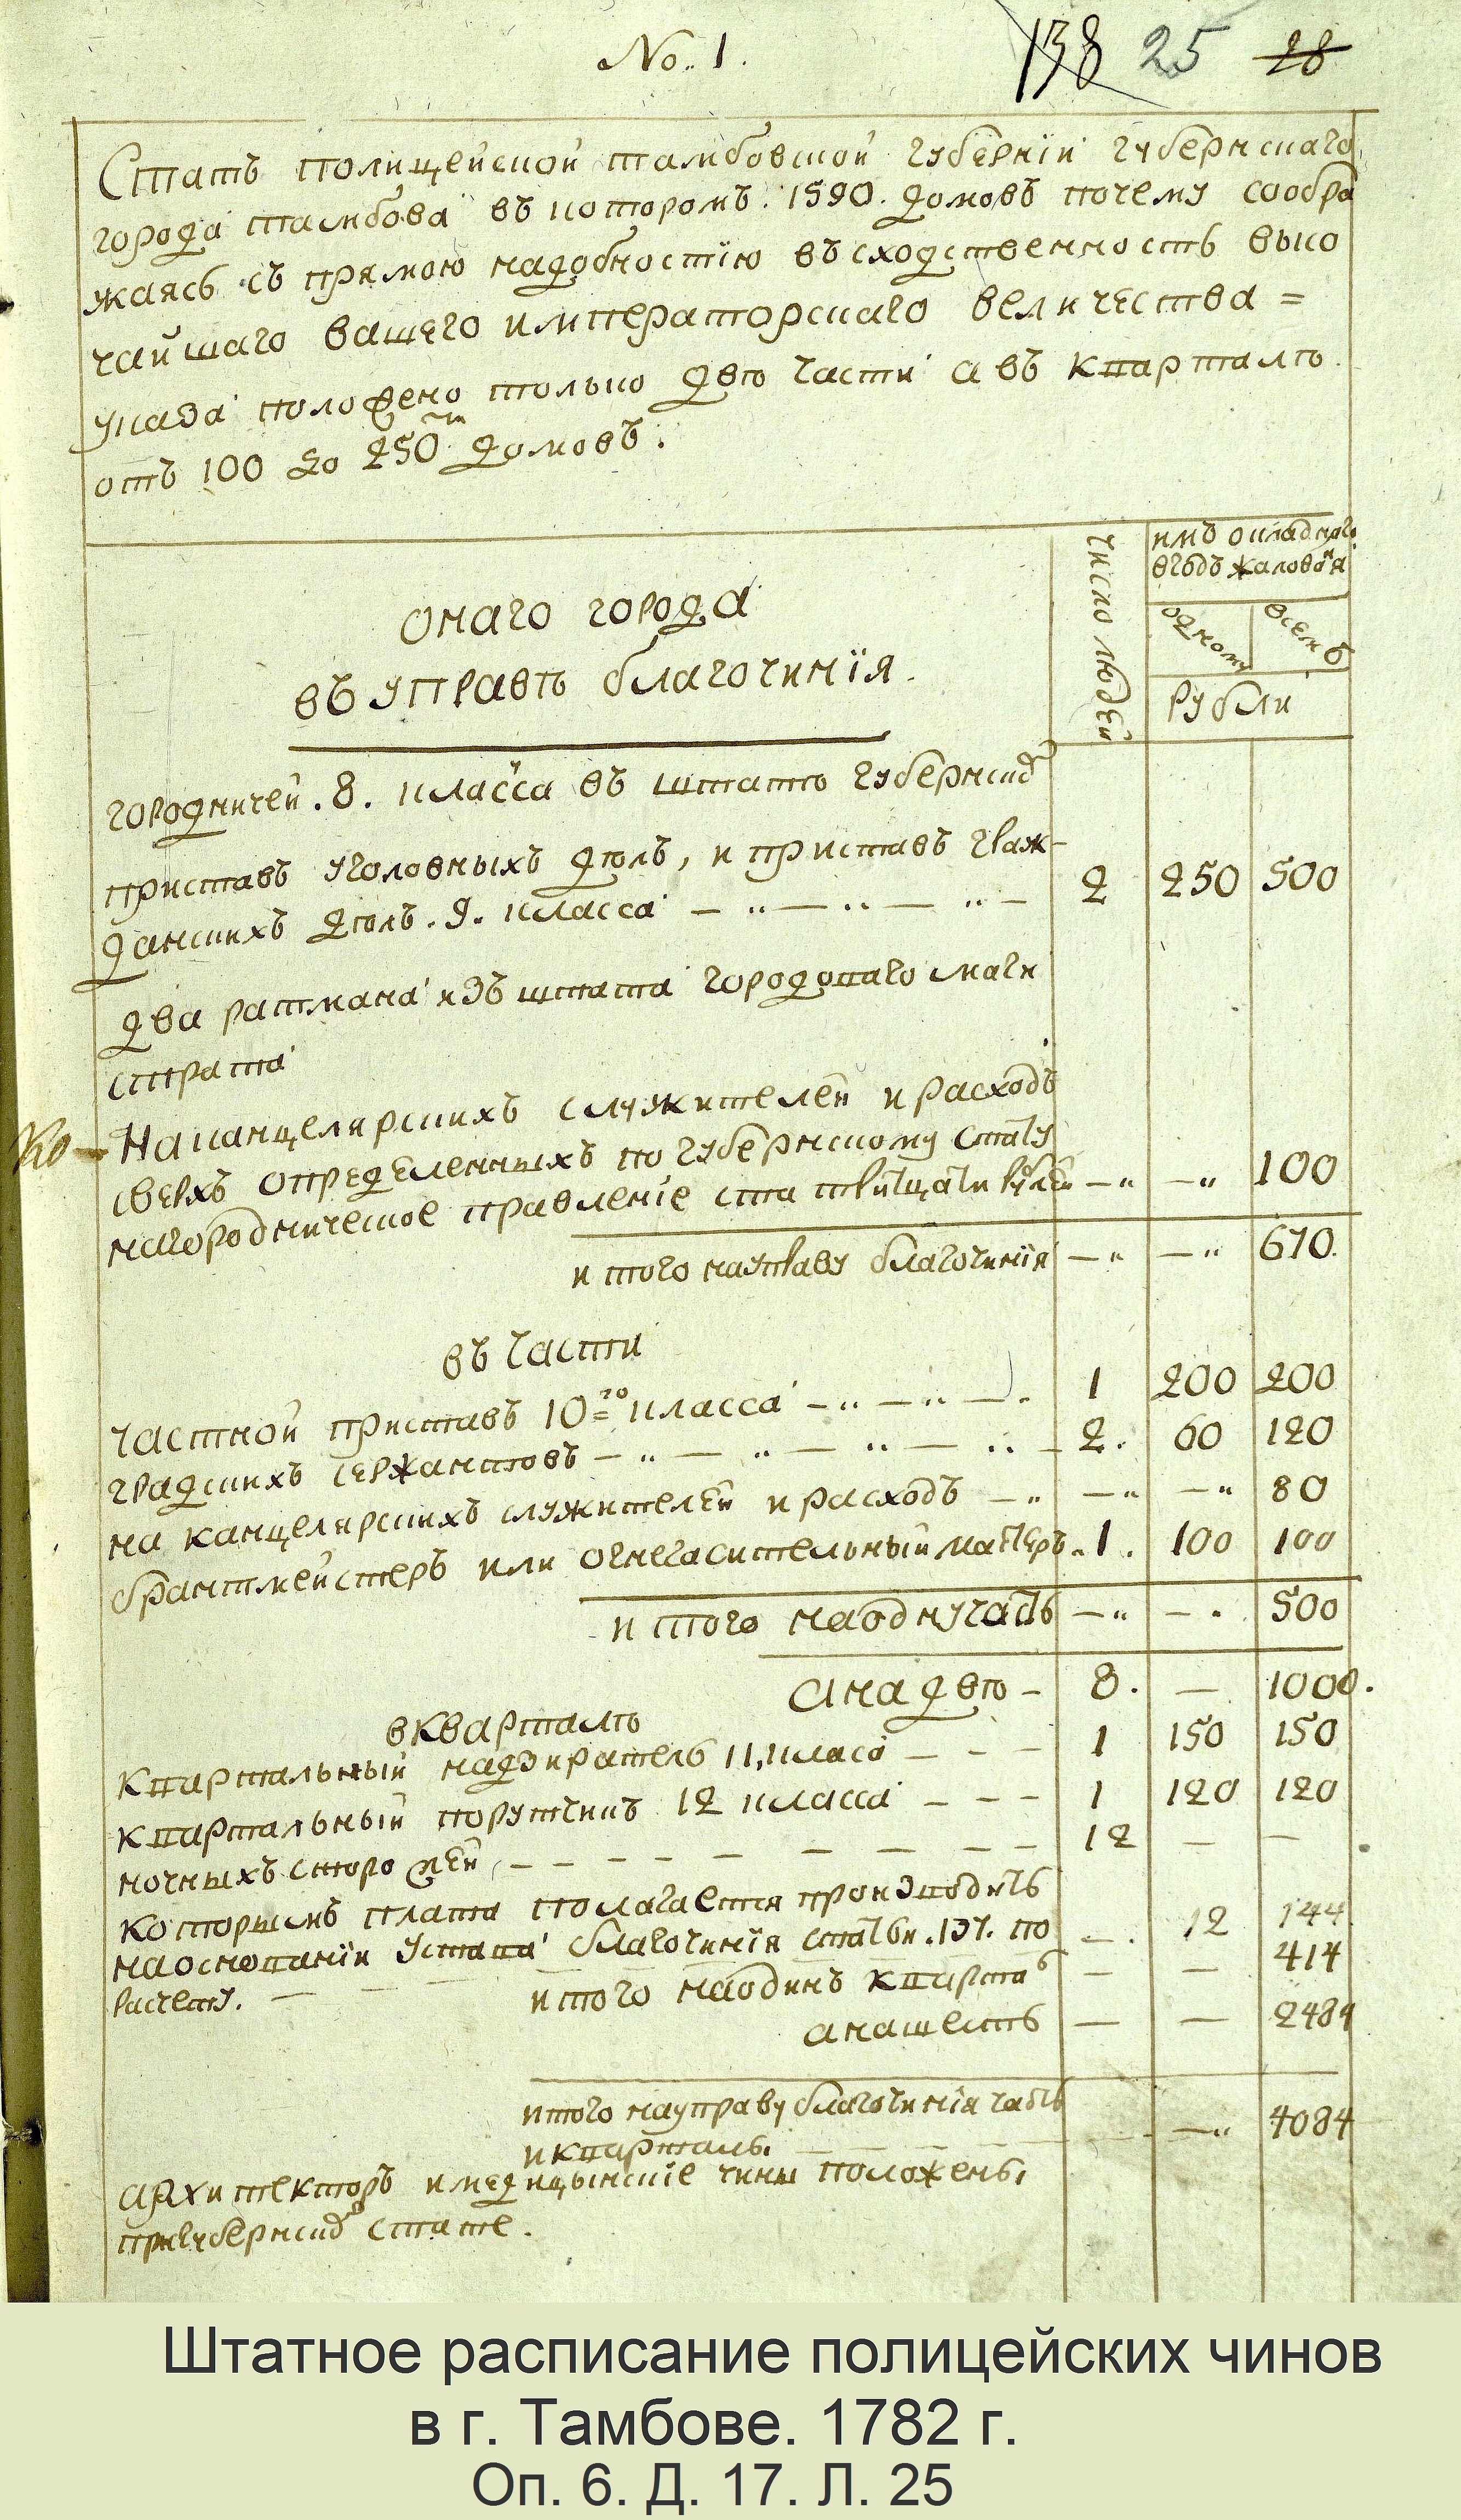 No. 1.
138 25 28
Статъ полицейской тамбовской губернїи губернскаго
города тамбова въ которомъ. 1590. домовъ почему сообра
жаясь съ прямою надобностїю въ сходственность высо
чайшаго вашего императорскаго величества =
указа положено только двѣ части а въ кварталѣ
отъ 100 до 250ти домовъ.
число людей
имъ окладного
вгодъ жалованя
одному всемъ
рубли
онаго города
въ управѣ благочинїя.
городничей. 8. класса въ штатѣ губернско
приставъ уголовныхъ дѣлъ, и приставъ граж-
данскихъ дѣлъ. 9. класса — " — " — " — 2 250 500
два ратмана изъ штата городоваго маги
страта
На канцелярскихъ служителей и расходъ
сверхъ определенныхъ по губернскому стату
нагородническое правленіе ста тритцати рублей — " — " 100
итого науправу благочинїя — " — " 670.
въ части
частной приставъ 10го класса — " — " — . 1 200 200
градскихъ сержантовъ — " — " — " — " — 2. 60 120
на канцелярскихъ служителей и расходъ — " — " — " 80
брантмейстеръ или огнегасительный мастеръ. 1. 100 100
итого наодну часть — " — . 500
анадвѣ — 8. — 1000.
вкварталѣ
квартальный надзиратель 11, класа — — — 1 150 150
квартальный порутчикъ 12 класса — — — 1 120 120
ночныхъ сторожей, — — — — — — — — 12 — —
которымъ плата полагается производить
наоснованїи устава благочинїя статьи. 137. по — . 12 144
расчету. — — итого наодинъ кварталъ — — 414
анашесть — — 2484
итого науправу благочинїя часть
и кварталы — — — " 4084
архитекторъ имедицынскїе чины положены,
пригубернско стате.
Штатное расписание полицейских чинов
в г. Тамбове. 1782 г.
Оп. 6. Д. 17. Л. 25